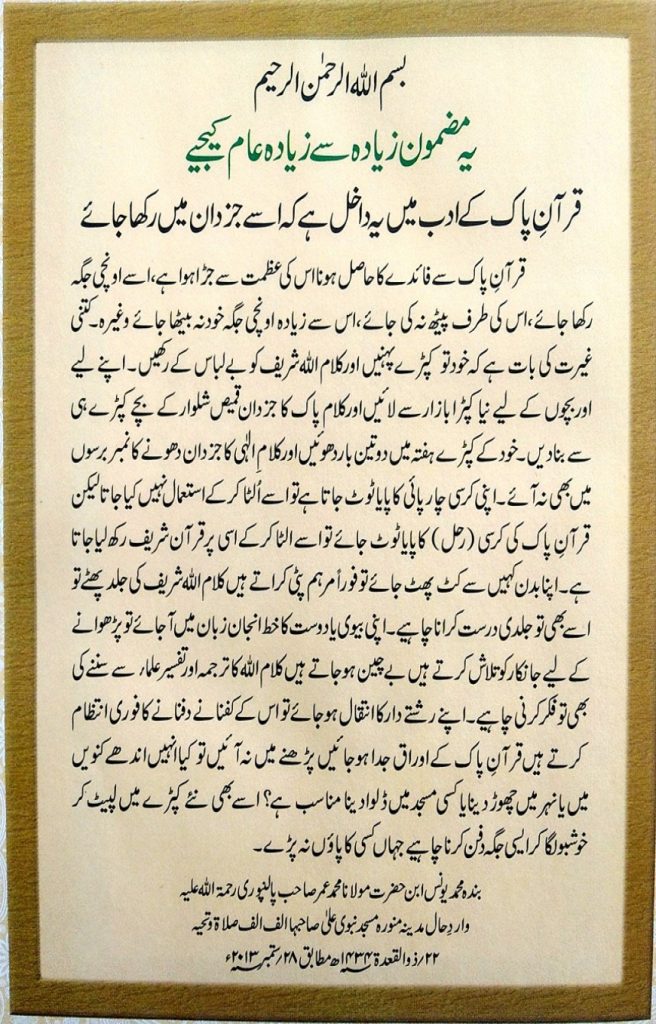 بسم اللہ الرحمٰن الرحیم
یہ مضمون زیادہ سے زیادہ عام کیجیے
قرآنِ پاک کے ادب میں یہ داخل ہے کہ اسے جزدان میں رکھا جائے
قرآنِ پاک سے فائدے کا حاصل ہونا اس کی عظمت سے جڑا ہوا ہے، اسے اونچی جگہ
رکھا جائے، اس کی طرف پیٹھ نہ کی جائے، اس سے زیادہ اونچی جگہ خود نہ بیٹھا جائے وغیرہ۔ کتنی
غیرت کی بات ہے کہ خود تو کپڑے پہنیں اور کلام اللہ شریف کو بے لباس کے رکھیں۔ اپنے لیے
اور بچوں کے لیے نیا کپڑا بازار سے لائیں اور کلام پاک کا جزدان قمیص شلوار کے بچے کپڑے ہی
سے بنا دیں۔ خود کے کپڑے ہفتہ میں دو تین بار دھوئیں اور کلامِ الٰہی کا جزدان دھونے کا نمبر برسوں
میں بھی نہ آئے۔ اپنی کرسی چارپائی کا پایا ٹوٹ جاتا ہے تو اسے اُلٹا کر کے استعمال نہیں کیا جاتا لیکن
قرآنِ پاک کی کرسی (رحل) کا پایا ٹوٹ جائے تو اسے الٹا کر کے اسی پر قرآن شریف رکھ لیا جاتا
ہے۔ اپنا بدن کہیں سے کٹ پھٹ جائے تو فوراً مرہم پٹی کراتے ہیں کلام اللہ شریف کی جلد پھٹے تو
اسے بھی تو جلدی درست کرانا چاہیے۔ اپنی بیوی یا دوست کا خط انجان زبان میں آ جائے تو پڑھوانے
کے لیے جانکار کو تلاش کرتے ہیں بے چین ہو جاتے ہیں کلام اللہ کا ترجمہ اور تفسیر علماء سے سننے کی
بھی تو فکر کرنی چاہیے۔ اپنے رشتے دار کا انتقال ہو جائے تو اس کے کفنانے دفنانے کا فوری انتظام
کرتے ہیں قرآنِ پاک کے اوراق جدا ہو جائیں پڑھنے میں نہ آئیں تو کیا انہیں اندھے کنویں
میں یا نہر میں چھوڑ دینا یا کسی مسجد میں ڈلوا دینا مناسب ہے؟ اسے بھی نئے کپڑے میں لپیٹ کر
خوشبو لگا کر ایسی جگہ دفن کرنا چاہیے جہاں کسی کا پاؤں نہ پڑے۔
بندہ محمد یونس ابن حضرت مولانا محمد عمر صاحب پالنپوری رحمۃ اللہ علیہ
واردِ حال مدینہ منورہ مسجد نبوی علیٰ صاحبہا الف الف صلاۃ وتحیہ
۲۲؍ذوالقعدۃ ۱۴۳۴ھ مطابق ۲۸؍ستمبر ۲۰۱۳ء